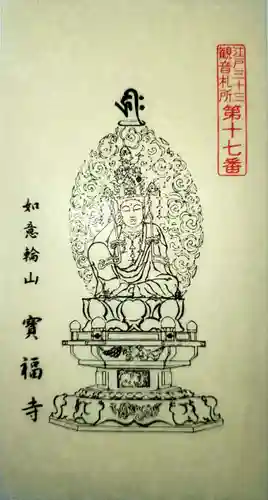 江戸三十三
観音札所
第十七番
如意輪山
寳福寺